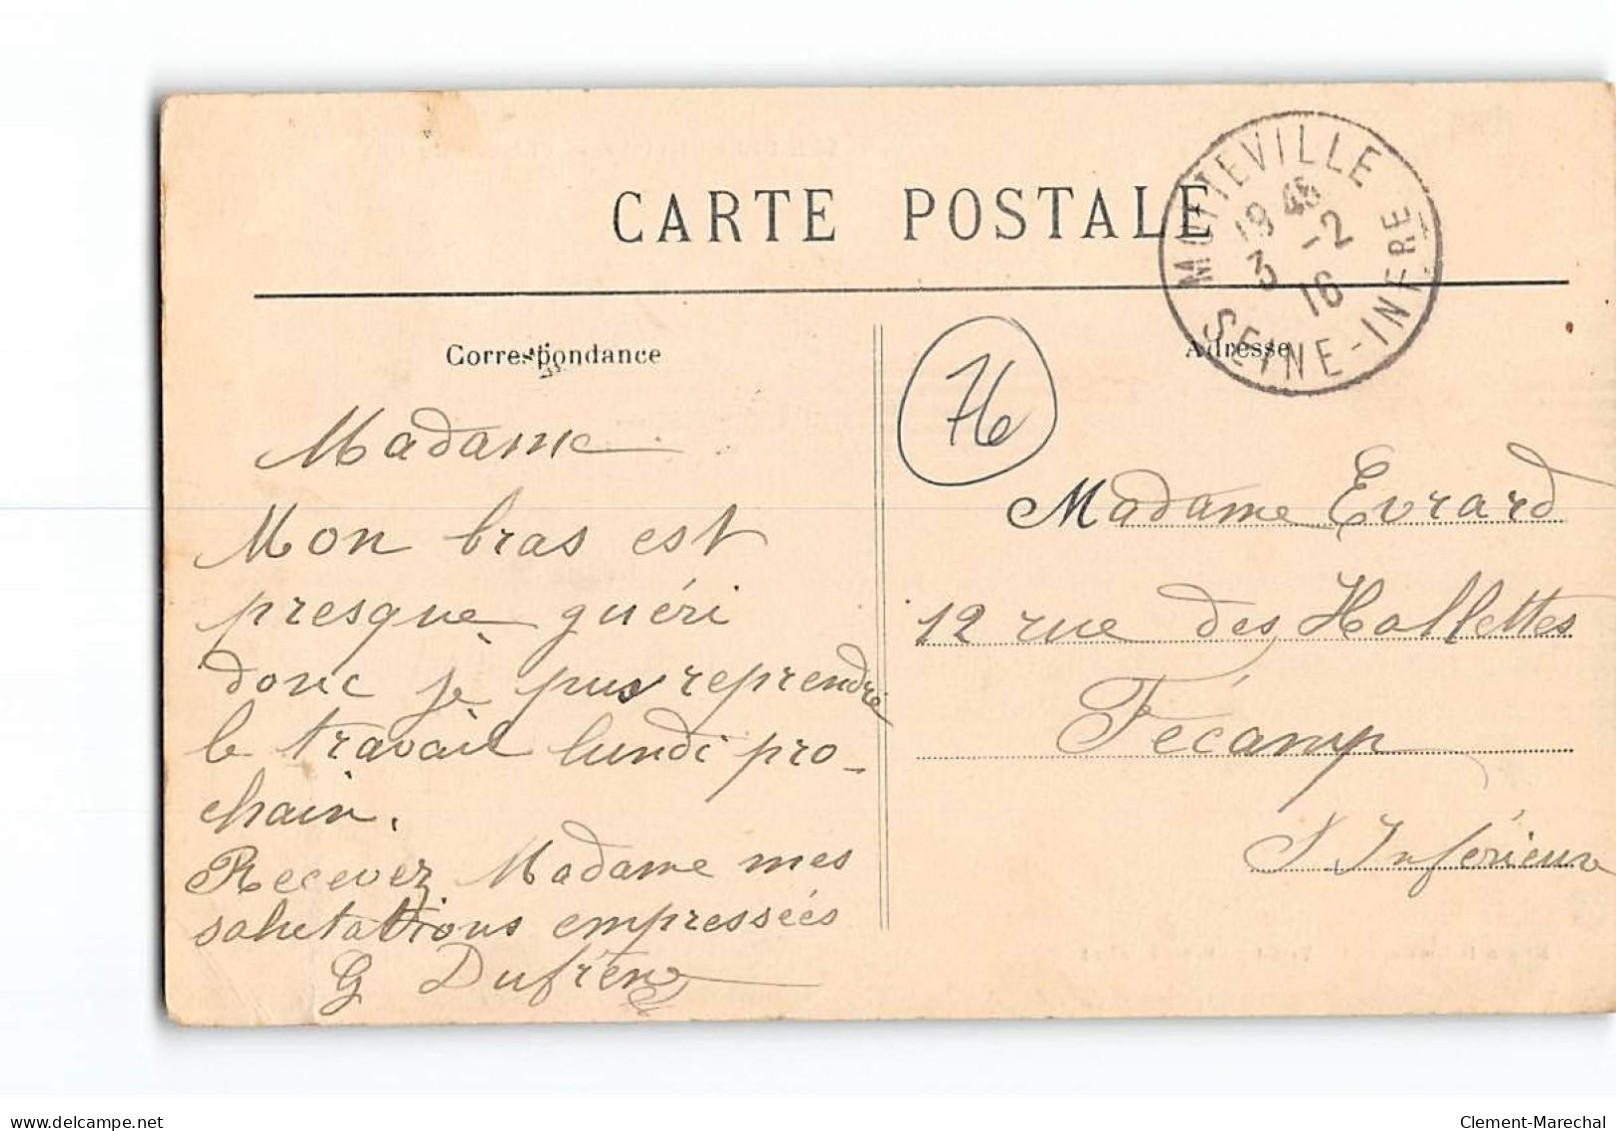 CARTE POSTALE
MOTTEVILLE
19 45
3 -2
16
SEINE-INFRE
Correspondance
Adresse
76
Madame
Mon bras est
presque guéri
donc je puis reprendre
le travail lundi pro-
chain.
Recevez Madame mes
salutations empressées
G Dufrêne
Madame Evrard
12 rue des Hallettes
Fécamp
S Inférieure
delcampe.net
Clement-Marechal